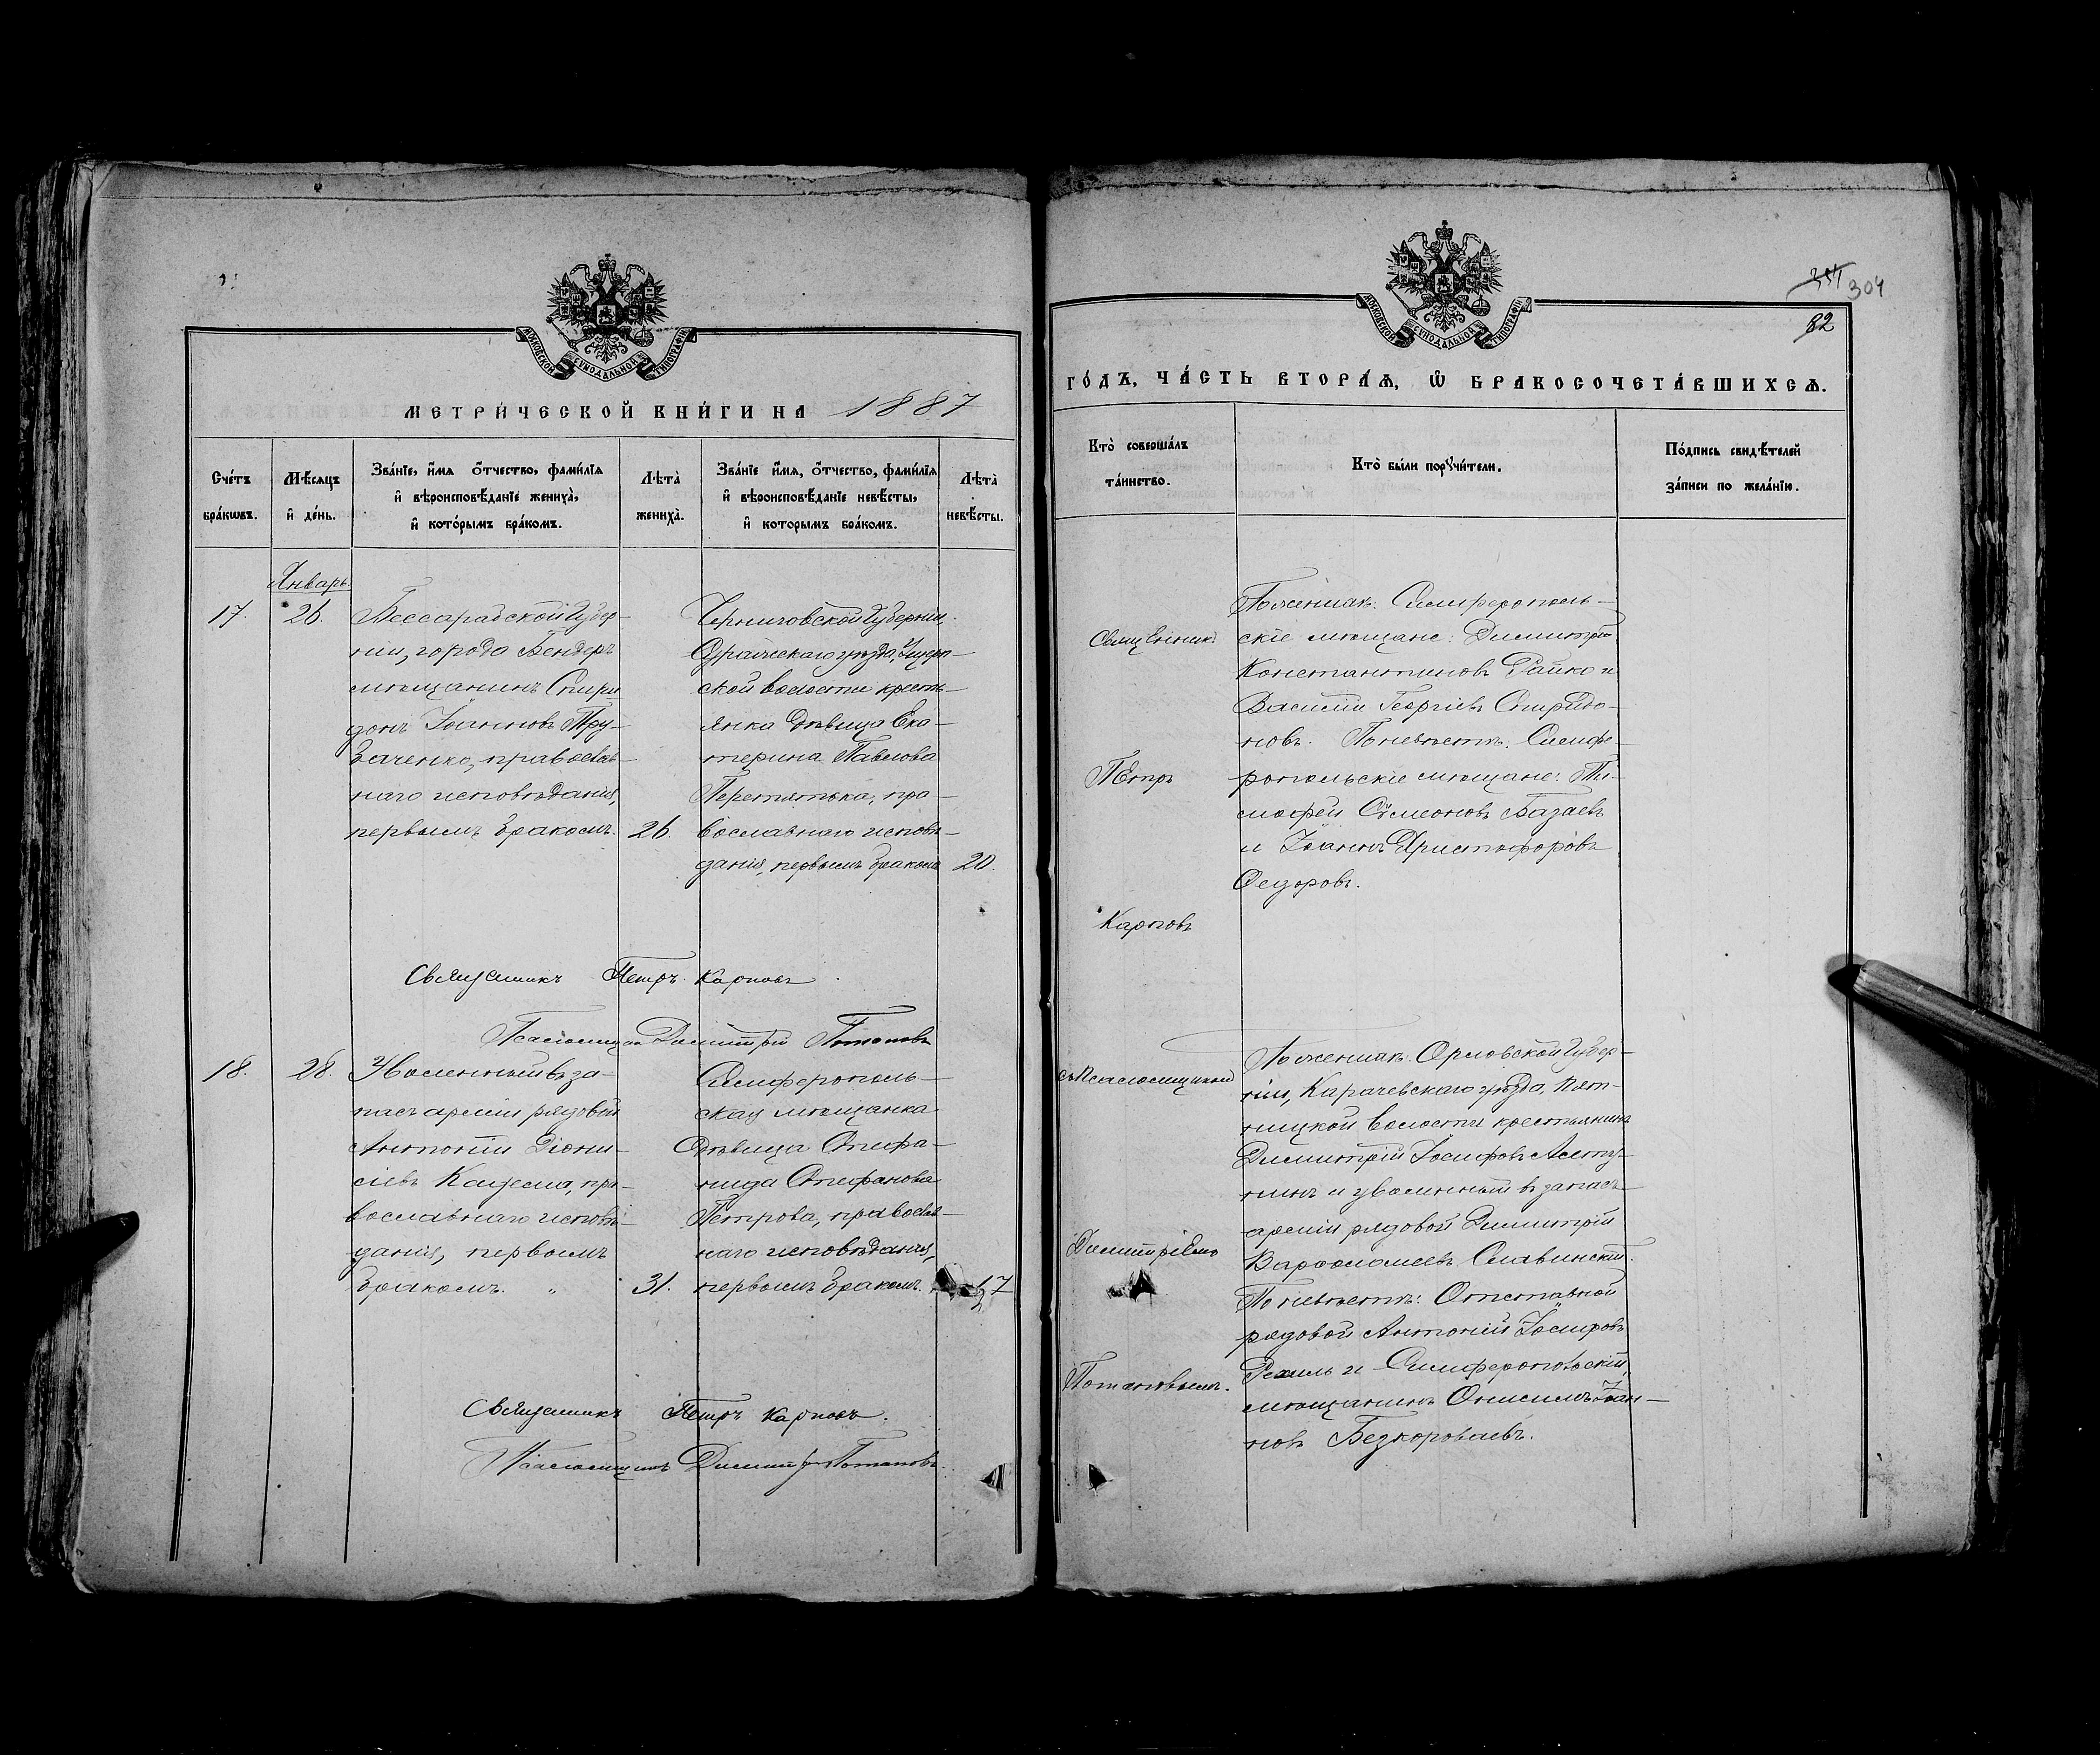 МОСКОВСКОЙ СУНОДАЛЬНОЙ ТИПОГРАФІИ
МЕТРИ́ЧЕСКОЙ КНИ́ГИ НА 1887
Сче́тъ бра́кѡвъ.
Мѣ́сяцъ и де́нь.
Зва́нїе, и҆́мя ѻ҆́тчество, фами́лїя
и҆ вѣроисповѣ́данїе жениха̀,
и҆ кото́рымъ бра́комъ.
Лѣта̀ жениха̀.
Зва́нїе и҆́мя, ѻ҆́тчество, фами́лїя
и҆ вѣроисповѣ́данїе невѣ́сты,
и҆ которымъ бра́комъ.
Лѣта̀ невѣ́сты.
Январь.
17. 26.
Бессарабской Губер-
ніи, города Бендеръ
мѣщанинъ Спири
донъ Іоанновъ Тру-
баченко, православ-
наго исповѣданія,
первымъ бракомъ. 26.
Черниговской Губерніи,
уѣзда,
ской волости кресть-
янка дѣвица Ека-
терина Павлова
Перетятька, пра-
вославнаго исповѣ-
данія, первымъ бракомъ 20.
Священникъ Петръ Карповъ
Псаломщикъ Димитрій Потаповъ
18. 28.
Уволенный въ за-
пасъ арміи рядовой
Антоній Діони-
сіевъ пра-
вославнаго исповѣ-
данія, первымъ
бракомъ. „ 31.
Симферополь-
ская мѣщанка
дѣвица Стефа-
нида Стефанова
Петрова, православ-
наго исповѣданія,
первымъ бракомъ. 17
Священникъ Петръ Карповъ.
Псаломщикъ Димитрій Потаповъ.
304
82
МОСКОВСКОЙ СУНОДАЛЬНОЙ ТИПОГРАФІИ
ГО́ДЪ, ЧА́СТЬ ВТОРА́Ѧ, Ѡ҆ БРАКОСОЧЕТА́ВШИХСѦ.
Кто̀ соверша́лъ
та́инство.
Кто̀ бы́ли порꙋчи́тели.
По́дпись свидѣ́телей
за́писи по жела́нїю.
Священникъ
Петръ
Карповъ
съ Псаломщикомъ
Димитріемъ
Потаповымъ.
По женихѣ: Симферополь-
скіе мѣщане: Димитрій
Константиновъ Райко и
Василій Георгіевъ Спиридо-
новъ. По невѣстѣ: Симфе-
ропольскіе мѣщане: Ти-
мофей Сѵмеоновъ Базаевъ
и Іоаннъ Христофоровъ
Ѳедоровъ.
По женихѣ: Орловской Губер-
ніи, Карачевскаго уѣзда, Пят-
ницкой волости крестьянинъ
Димитрій Іосифовъ
и уволенный въ запасъ
арміи рядовой Димитрій
Варѳоломеевъ Славинскій.
По невѣстѣ: Отставной
рядовой Антоній Іосифовъ
и Симферопольскій
мѣщанинъ Онисимъ Іоан-
новъ Безкороваевъ.